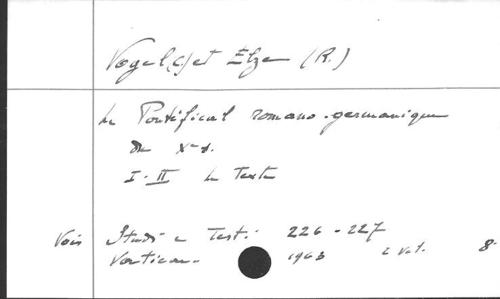 Vogel (C) et Elze (R.)
Le Pontifical romano-germanique
du Xe s.
I-II Le Texte
Vois Studi e Testi 226-227
Vatican 1963 2 vol. 8°